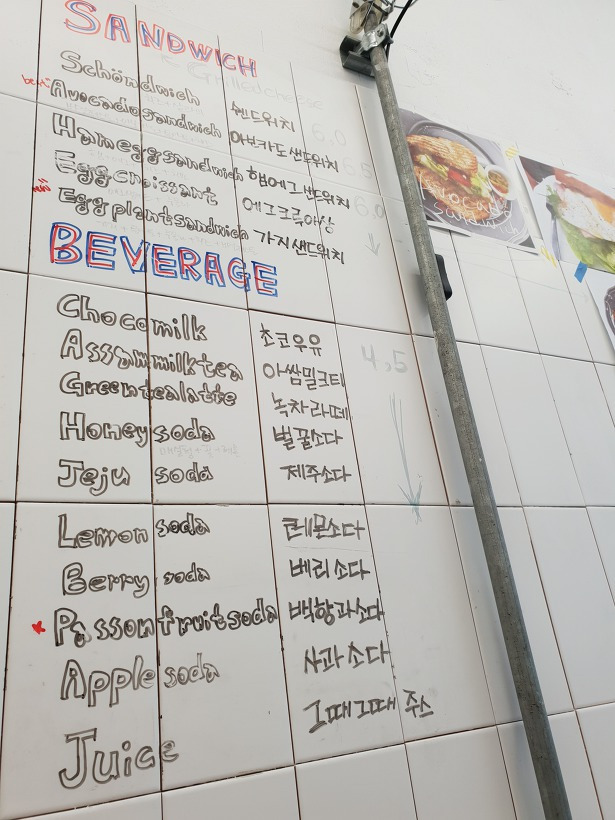 SANDWICH
Grilledcheese
Schöndwich 쉔드위치 6,0
best Avocadosandwich 아보카도샌드위치 6,5
Hameggsandwich 햄에그샌드위치 6,0
Eggcroissant 에그크루아상
Eggplantsandwich 가지샌드위치
BEVERAGE
Chocomilk 초코우유 4,5
Assammilktea 아쌈밀크티
Greentealatte 녹차라떼
Honeysoda 벌꿀소다
Jeju soda 제주소다
Lemon soda 레몬소다
Berry soda 베리소다
Passonfruitsoda 백향과소다
Apple soda 사과소다
Juice 그때그때 주스
Avocado
Sandwich